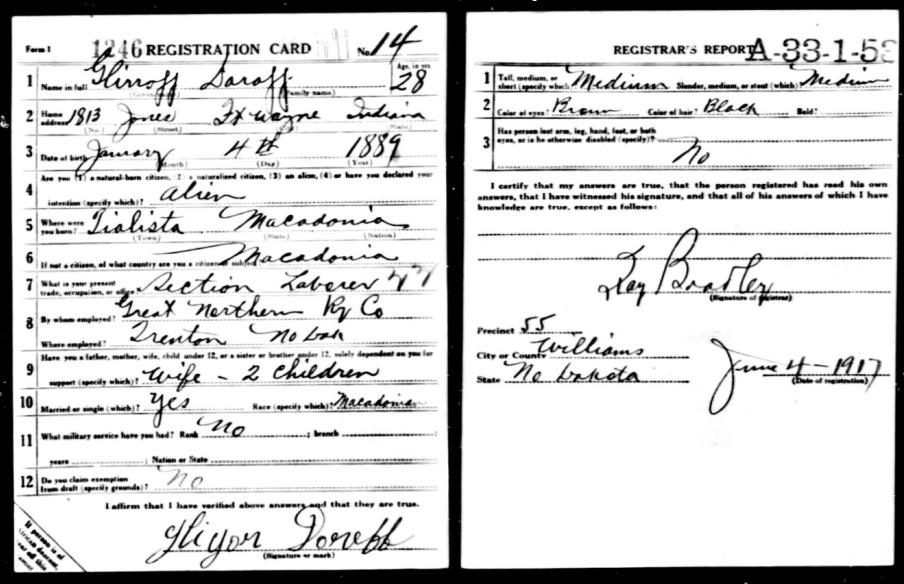 Form 1 1246 REGISTRATION CARD No. 14
1 Name in full Gliroff Doroff Age, in yrs 28
(Given name) (Family name)
2 Home address 1813 Jones Ft Wayne Indiana
(No.) (Street) (State)
3 Date of birth January 4th 1889
(Month) (Day) (Year)
Are you (1) a natural-born citizen, (2) a naturalized citizen, (3) an alien, (4) or have you declared your
4 intention (specify which)? alien
5 Where were you born? Tialista Macadonia
(Town) (State) (Nation)
6 If not a citizen, of what country are you a citizen or subject? Macadonia
7 What is your present trade, occupation, or office? Section Laborer
8 By whom employed? Great Northern Ry Co
Where employed? Trenton No Dak
Have you a father, mother, wife, child under 12, or a sister or brother under 12, solely dependent on you for
9 support (specify which)? Wife - 2 Children
10 Married or single (which)? Yes Race (specify which)? Macadonian
11 What military service have you had? Rank No ; branch ;
years ; Nation or State
12 Do you claim exemption from draft (specify grounds)? No
I affirm that I have verified above answers and that they are true.
Gligor Doreff
(Signature or mark)
If person is of
African descent,
REGISTRAR'S REPORT A-33-1-53
1 Tall, medium, or short (specify which)? Medium Slender, medium, or stout (which)? Medium
2 Color of eyes? Brown Color of hair? Black Bald?
3 Has person lost arm, leg, hand, foot, or both eyes, or is he otherwise disabled (specify)?
No
I certify that my answers are true, that the person registered has read his own
answers, that I have witnessed his signature, and that all of his answers of which I have
knowledge are true, except as follows:
Ray Bradley
(Signature of registrar)
Precinct 55
City or County Williams
State No Dakota June 4 - 1917
(Date of registration)